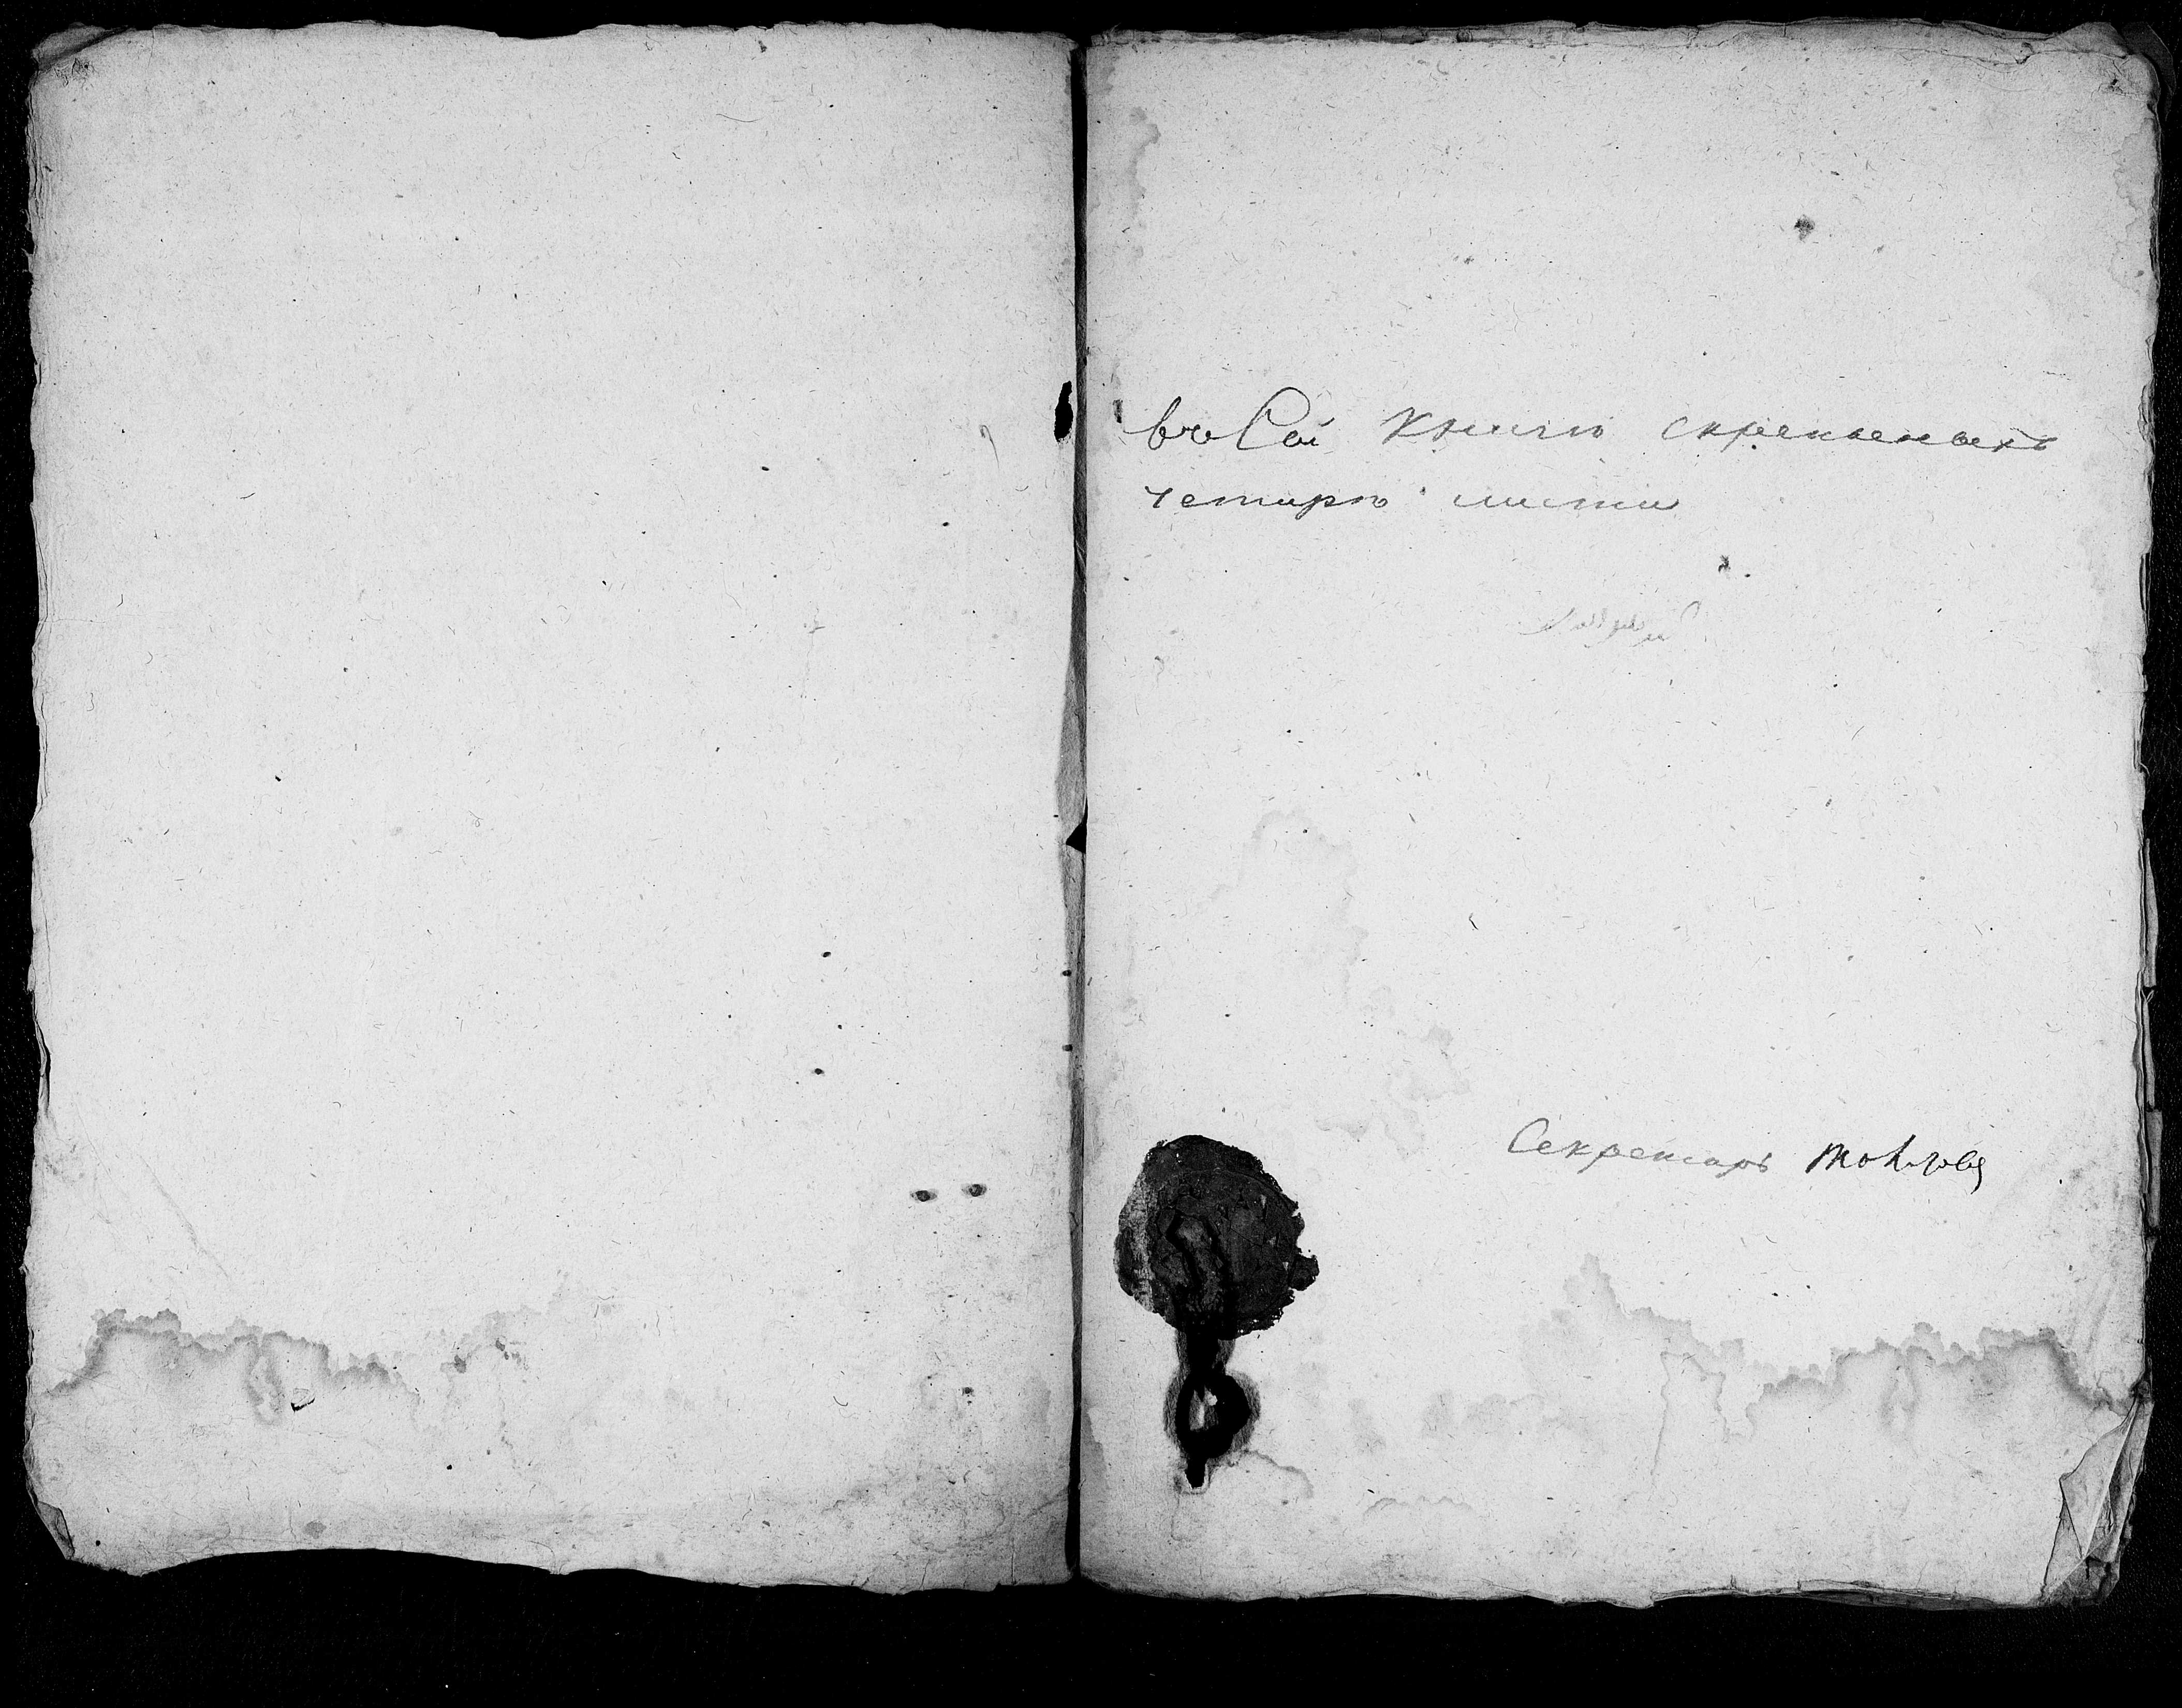 въ Сей книги скрепленыхъ
четыре листа
Секретарь